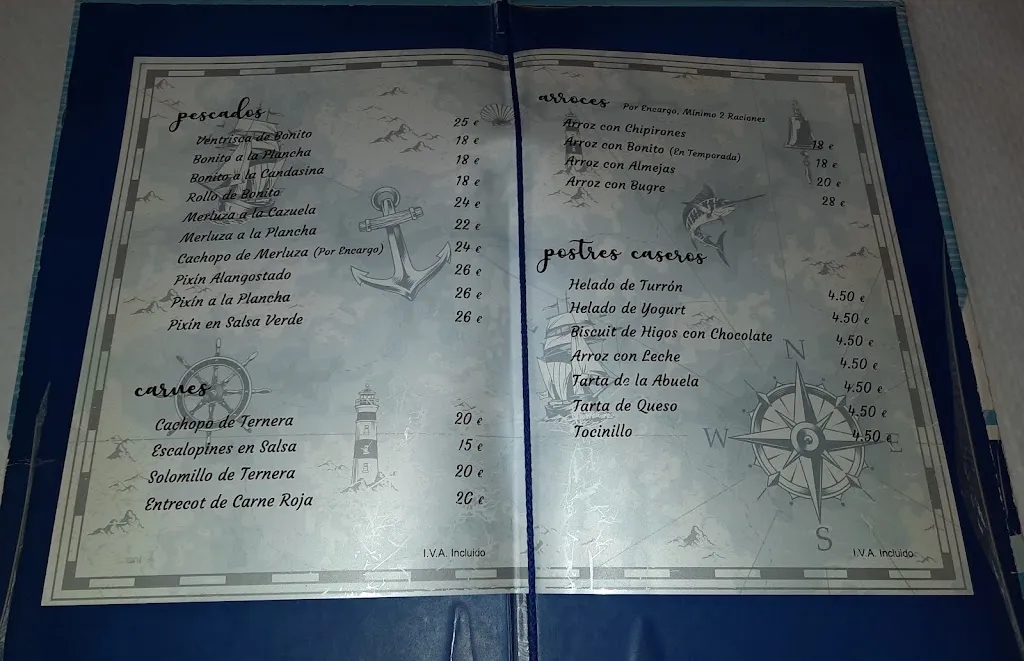 pescados
Ventrisca de Bonito 25 €
Bonito a la Plancha 18 €
Bonito a la Candasina 18 €
Rollo de Bonito 18 €
Merluza a la Cazuela 24 €
Merluza a la Plancha 22 €
Cachopo de Merluza (Por Encargo) 24 €
Pixín Alangostado 26 €
Pixín a la Plancha 26 €
Pixín en Salsa Verde 26 €
carnes
Cachopo de Ternera 20 €
Escalopines en Salsa 15 €
Solomillo de Ternera 20 €
Entrecot de Carne Roja 20 €
I.V.A. Incluido
arroces Por Encargo, Mínimo 2 Raciones
Arroz con Chipirones 18 €
Arroz con Bonito (En Temporada) 18 €
Arroz con Almejas 20 €
Arroz con Bugre 28 €
postres caseros
Helado de Turrón 4.50 €
Helado de Yogurt 4.50 €
Biscuit de Higos con Chocolate 4.50 €
Arroz con Leche 4.50 €
Tarta de la Abuela 4.50 €
Tarta de Queso 4.50 €
Tocinillo 4.50 €
N
W E
S
I.V.A. Incluido